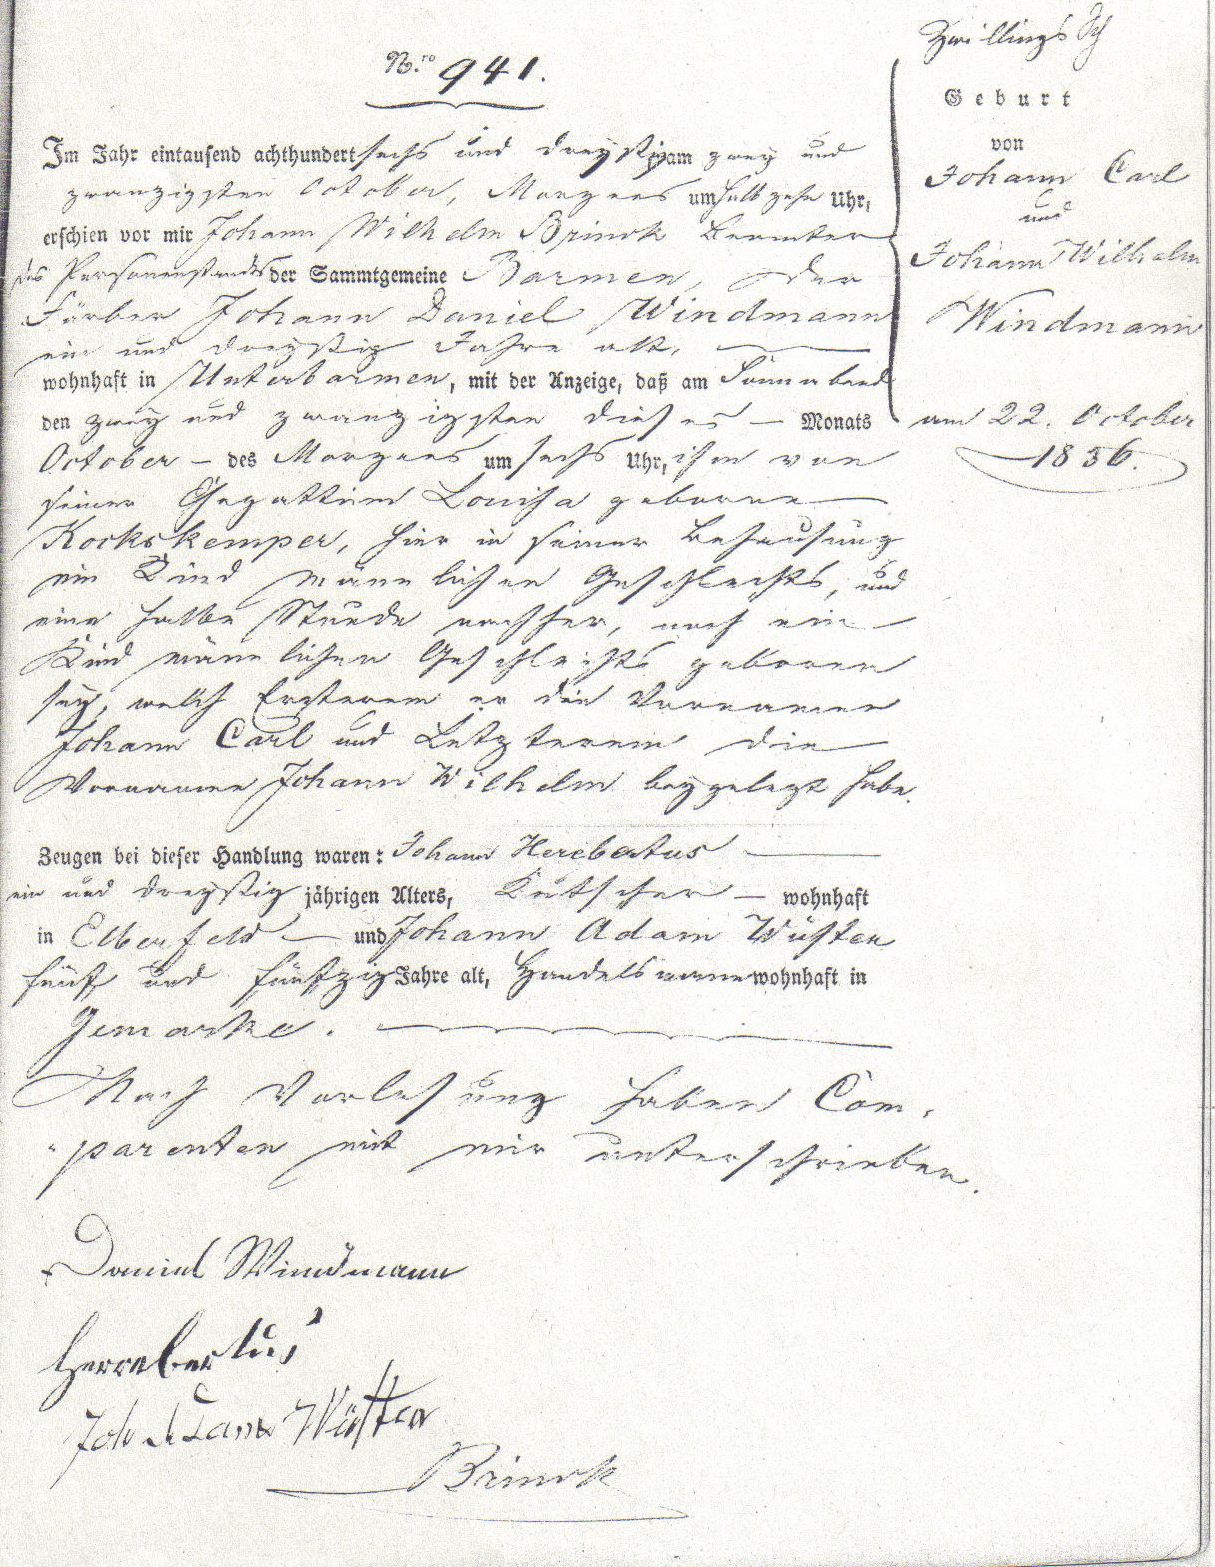 N.ro 941.
Im Jahr eintausend achthundert sechs und dreyßig am zwey und
zwanzigsten October, Morgens um halb zehn Uhr,
erschien vor mir Johann Wilhelm Brinck Beamter
des Personenstandes der Sammtgemeine Barmen, der
Färber Johann Daniel Windmann
ein und dreyßig Jahre alt,
wohnhaft in Unterbarmen, mit der Anzeige, daß am Sonnabend
den zwey und zwanzigsten dieses – Monats
October – des Morgens um sechs Uhr, ihm von
seiner Ehegattinn Louisa geborne
Kockskemper, hier in seiner Behausung
ein Kind männlichen Geschlechts, und
eine halbe Stunde nachher, noch ein
Kind männlichen Geschlechts geboren
sey, welch Ersterem er die Vornamen
Johann Carl und Letzterem die
Vornamen Johann Wilhelm beygelegt habe.
Zeugen bei dieser Handlung waren: Johann Herebertus
ein und dreyßig jährigen Alters, Kutscher – wohnhaft
in Elberfeld – und Johann Adam Wüsten
fünf und fünfzig Jahre alt, Handelsmann wohnhaft in
Gemarke.
Nach Vorlesung haben Com-
parenten mit mir unterschrieben.
Daniel Windmann
Herrebertus
Joh Adam Wüsten
Brinck
Zwillings
Geburt
von
Johann Carl
und
Johann Wilhelm
Windmann
am 22. October
1836.